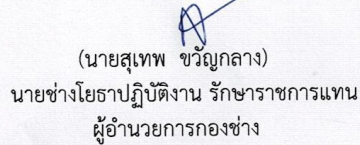 (นายสุเทพ ขวัญกลาง)
นายช่างโยธาปฏิบัติงาน รักษาราชการแทน
ผู้อำนวยการกองช่าง